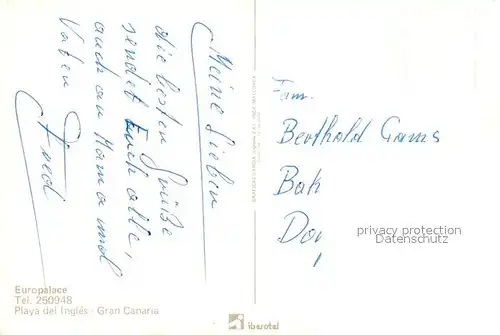 Meine Lieben
die besten Grüße
sendet Euch alle,
auch an Mama und
Vater Fred
Fam.
Berthold Gams
Bah
Dor
privacy protection
Datenschutz
Europalace
Tel. 250948
Playa del Inglés - Gran Canaria
iberotel